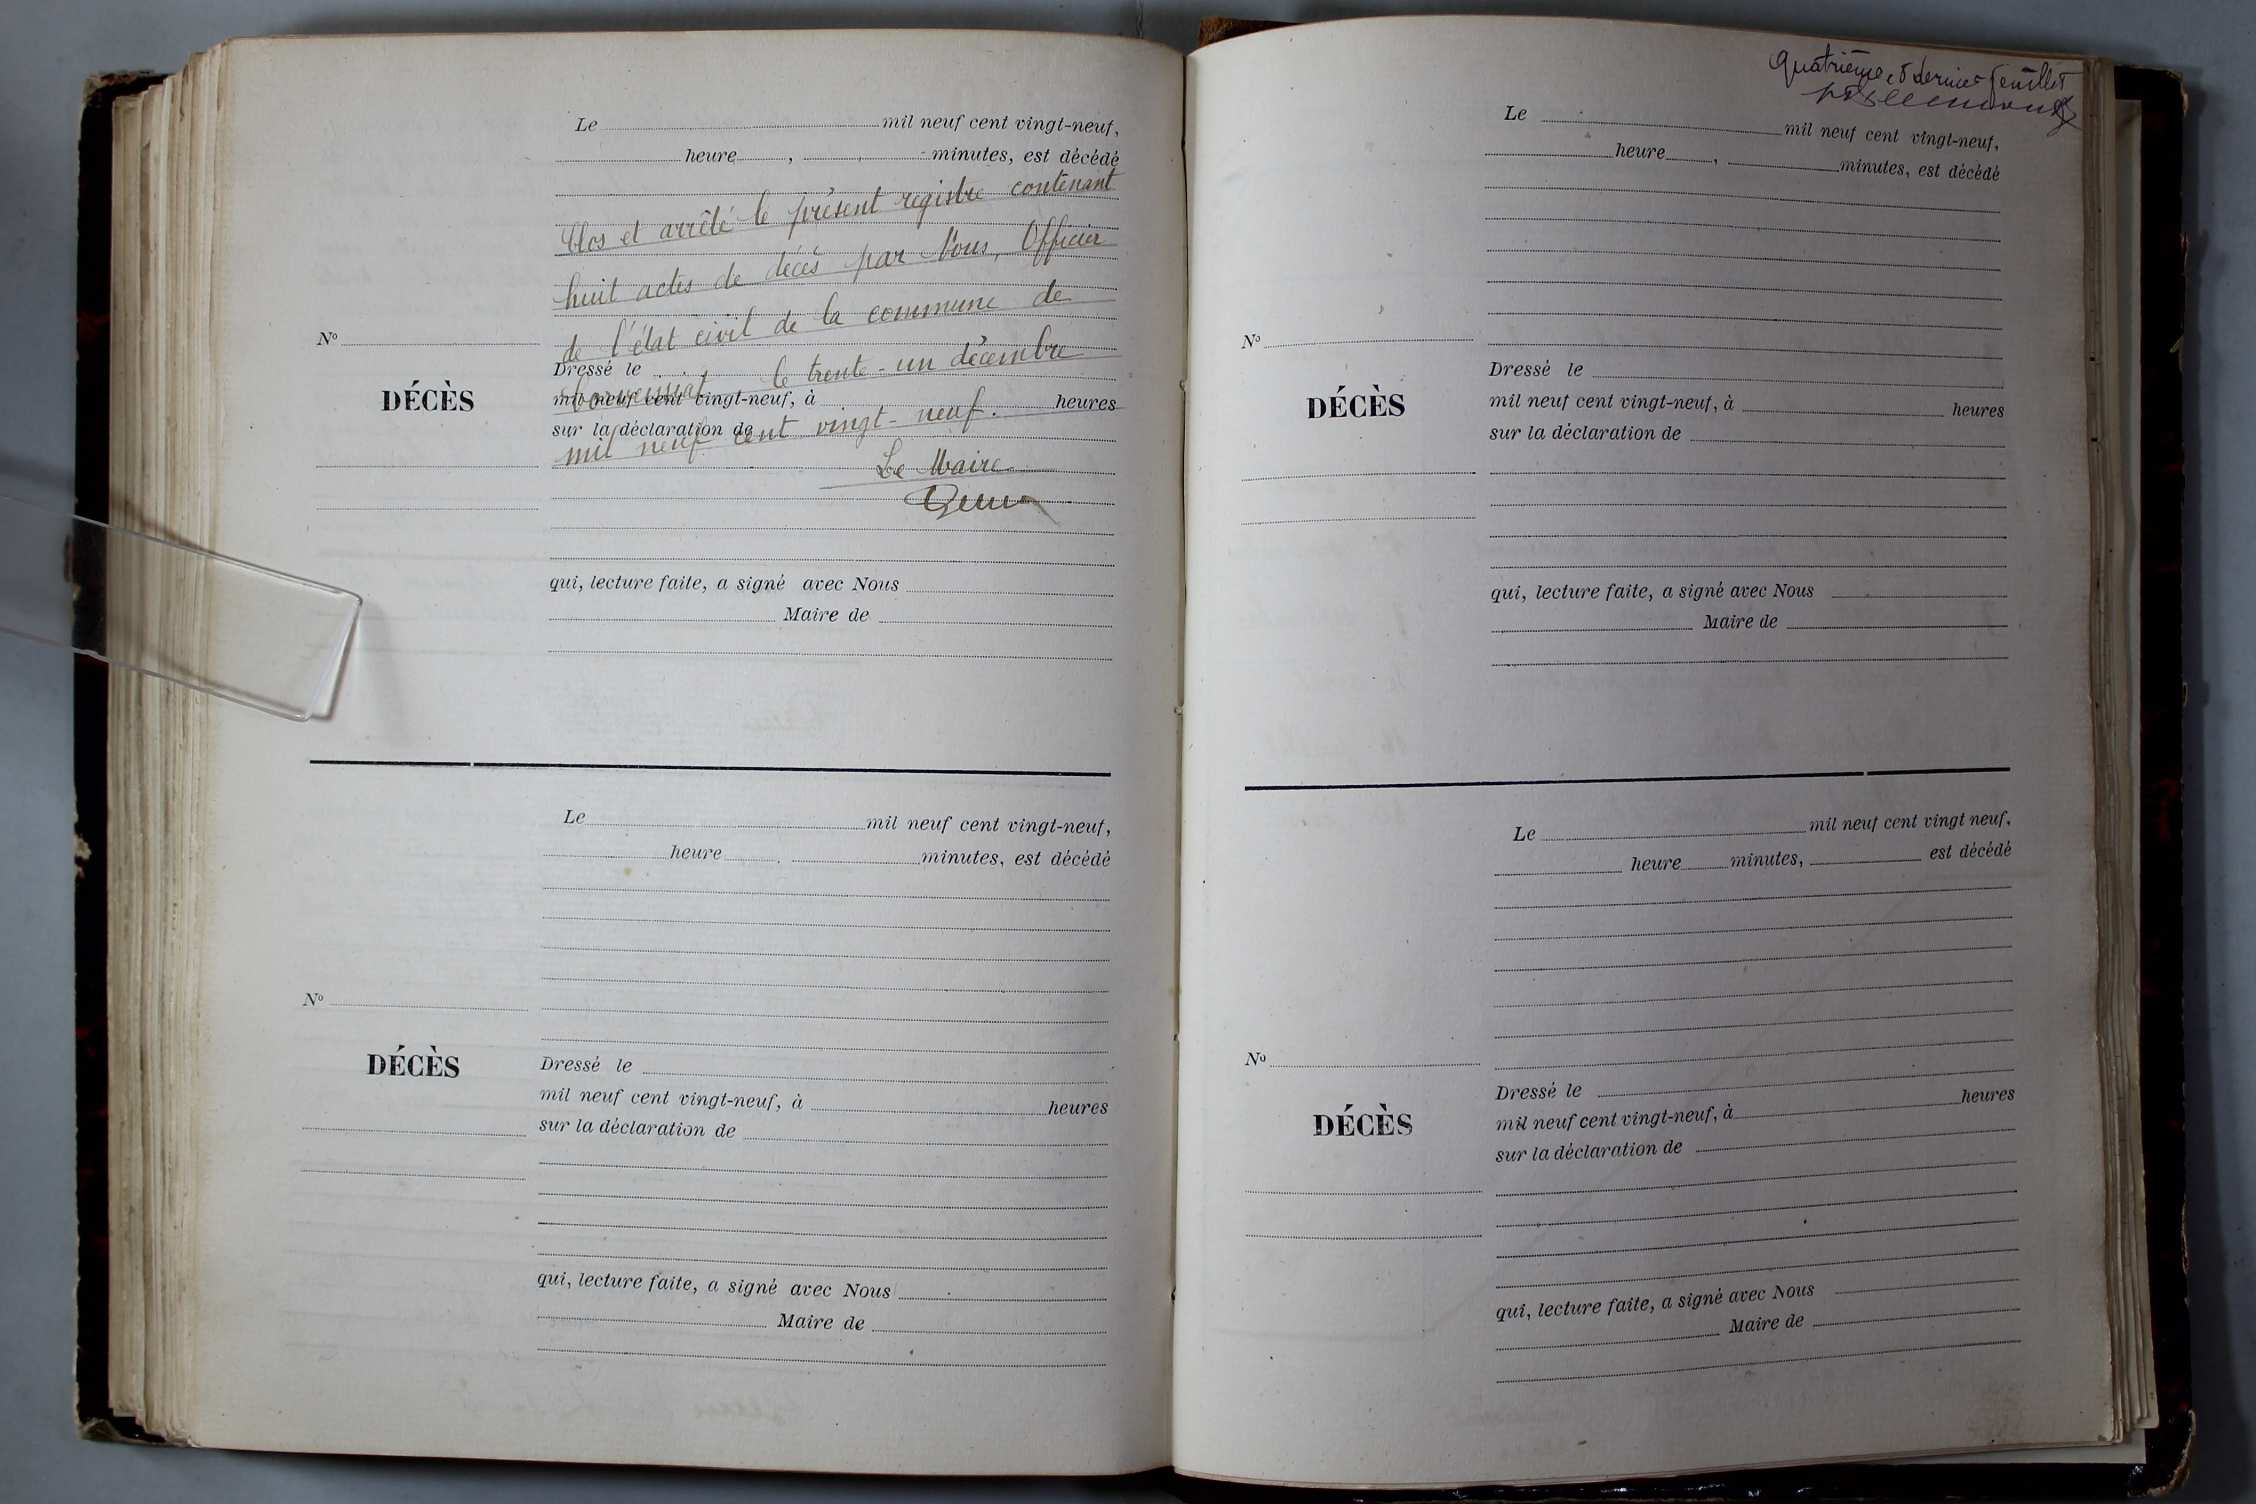 Le mil neuf cent vingt-neuf,
heure , minutes, est décédé
Clos et arrêté le présent registre contenant
huit actes de décès par Nous, Officier
de l'état civil de la commune de
le trente-un décembre
mil neuf cent vingt-neuf.
Le Maire
Nº
DÉCÈS
Dressé le
mil neuf cent vingt-neuf, à heures
sur la déclaration de
qui, lecture faite, a signé avec Nous
Maire de
Le mil neuf cent vingt-neuf,
heure , minutes, est décédé
Nº
DÉCÈS
Dressé le
mil neuf cent vingt-neuf, à heures
sur la déclaration de
qui, lecture faite, a signé avec Nous
Maire de
Quatrième et dernier feuillet
Le mil neuf cent vingt-neuf,
heure , minutes, est décédé
Nº
DÉCÈS
Dressé le
mil neuf cent vingt-neuf, à heures
sur la déclaration de
qui, lecture faite, a signé avec Nous
Maire de
Le mil neuf cent vingt neuf,
heure minutes, est décédé
Nº
DÉCÈS
Dressé le
mil neuf cent vingt-neuf, à heures
sur la déclaration de
qui, lecture faite, a signé avec Nous
Maire de